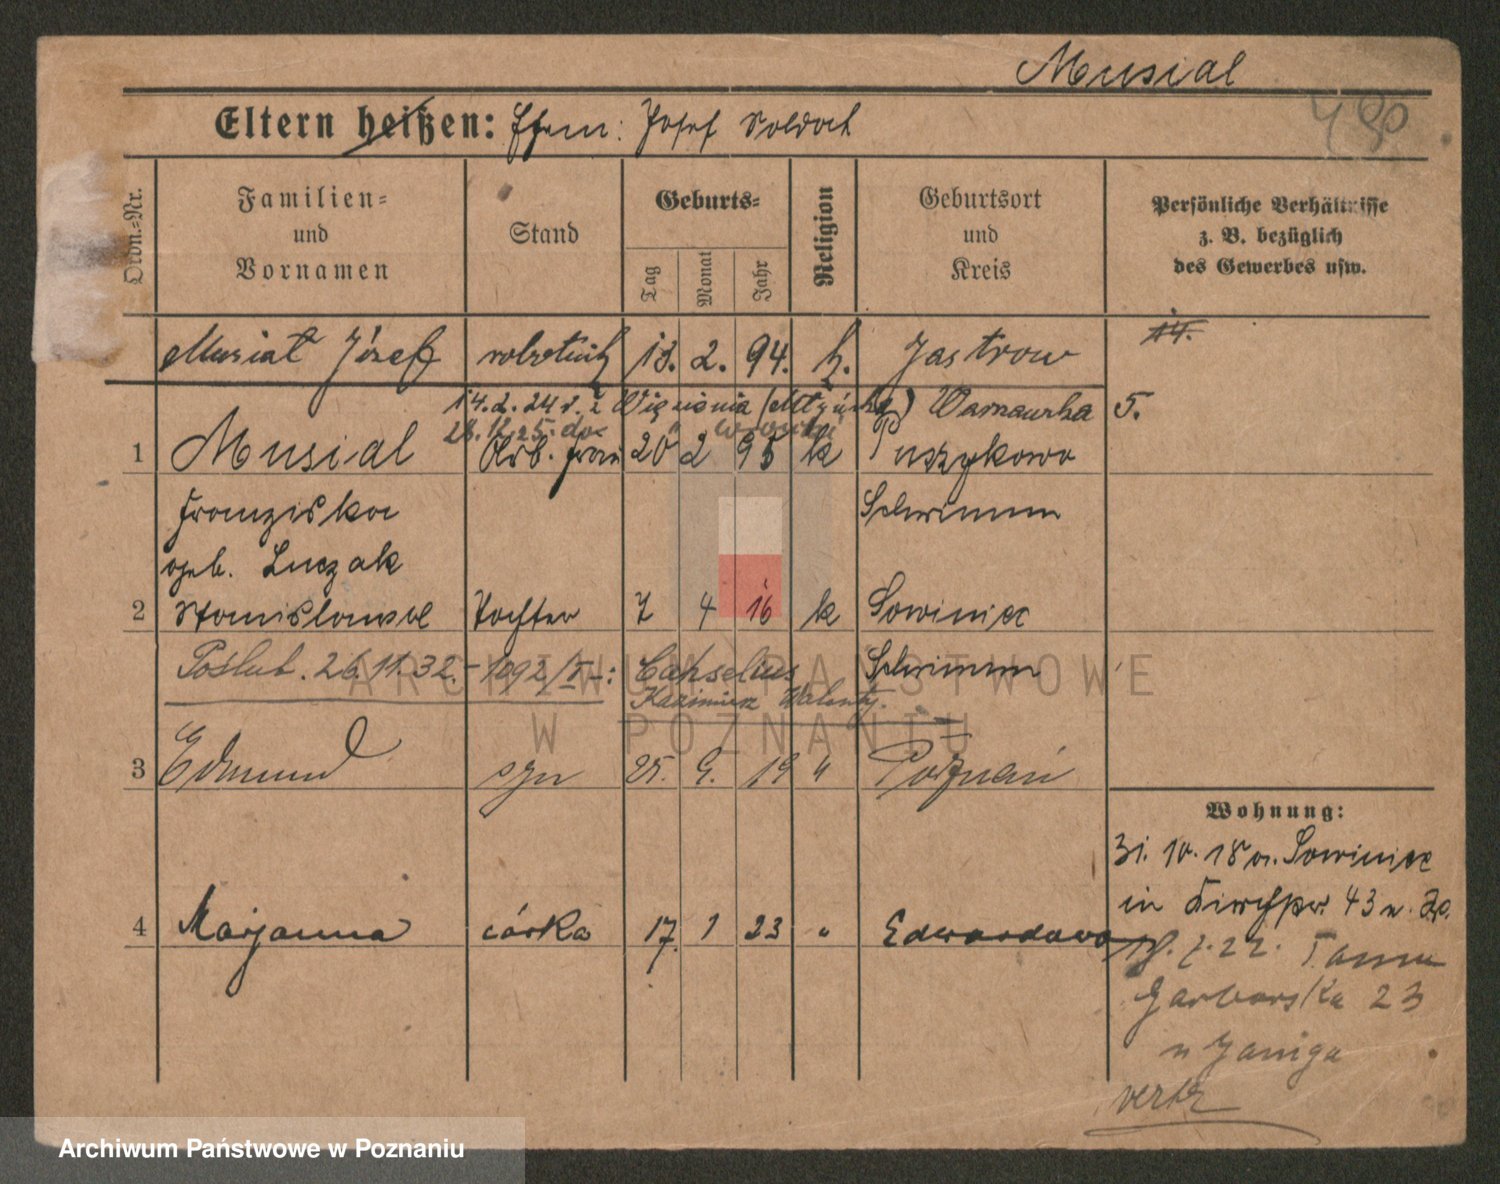 Musial
Eltern heißen: Ehem: Josef Soldat
Ordn.-Nr.
Familien- und Vornamen
Stand
Geburts-
Tag
Monat
Jahr
Religion
Geburtsort und Kreis
Persönliche Verhältnisse
z. B. bezüglich
des Gewerbes usw.
14.
Musiał Józef robotnik 13. 2. 94. k. Jastrow
14.2.24 r. z Więzienia (Młyńska) Warszawska 5.
28.12.25. do
1 Musial Arb. frau 20 2 95 k Puszykowo
Franziska Schrimm
geb. Luczak
2 Stanislawa Tochter 7 4 16 k Sowiniec
Poślub. 26.11.32. - 1092/V-: Schrimm
Kazimierz Walenty.
3 Edmund syn 25. 9. 19 " Poznań
Wohnung:
31. 10. 18 a. Sowiniec
in Kirchstr. 43 b.
4 Marjanna córka 17. 1 23 " Edwardowo
7.22. Tama
Garbarska 23
u Janiga
ARCHIWUM PAŃSTWOWE
W POZNANIU
Archiwum Państwowe w Poznaniu